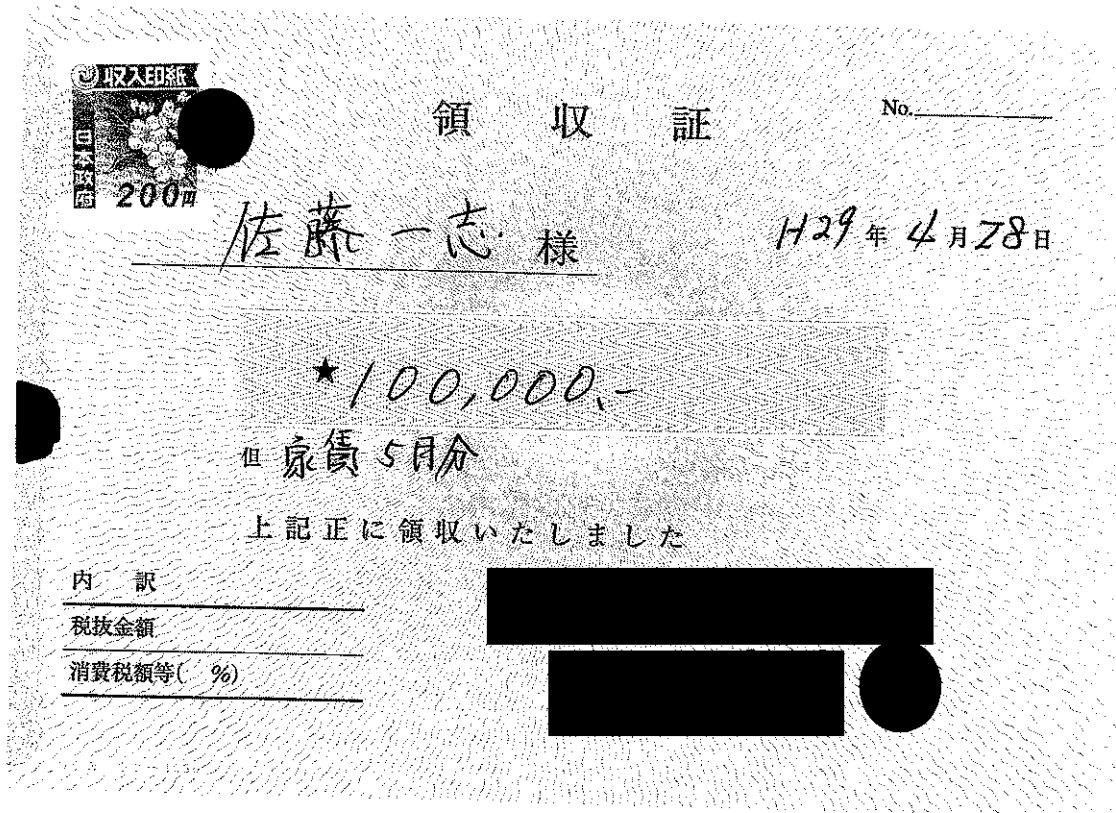 収入印紙
日本政府
200円
領収証
No.
佐藤一志 様
H29年4月28日
★100,000.-
但 家賃5月分
上記正に領収いたしました
内訳
税抜金額
消費税額等( %)